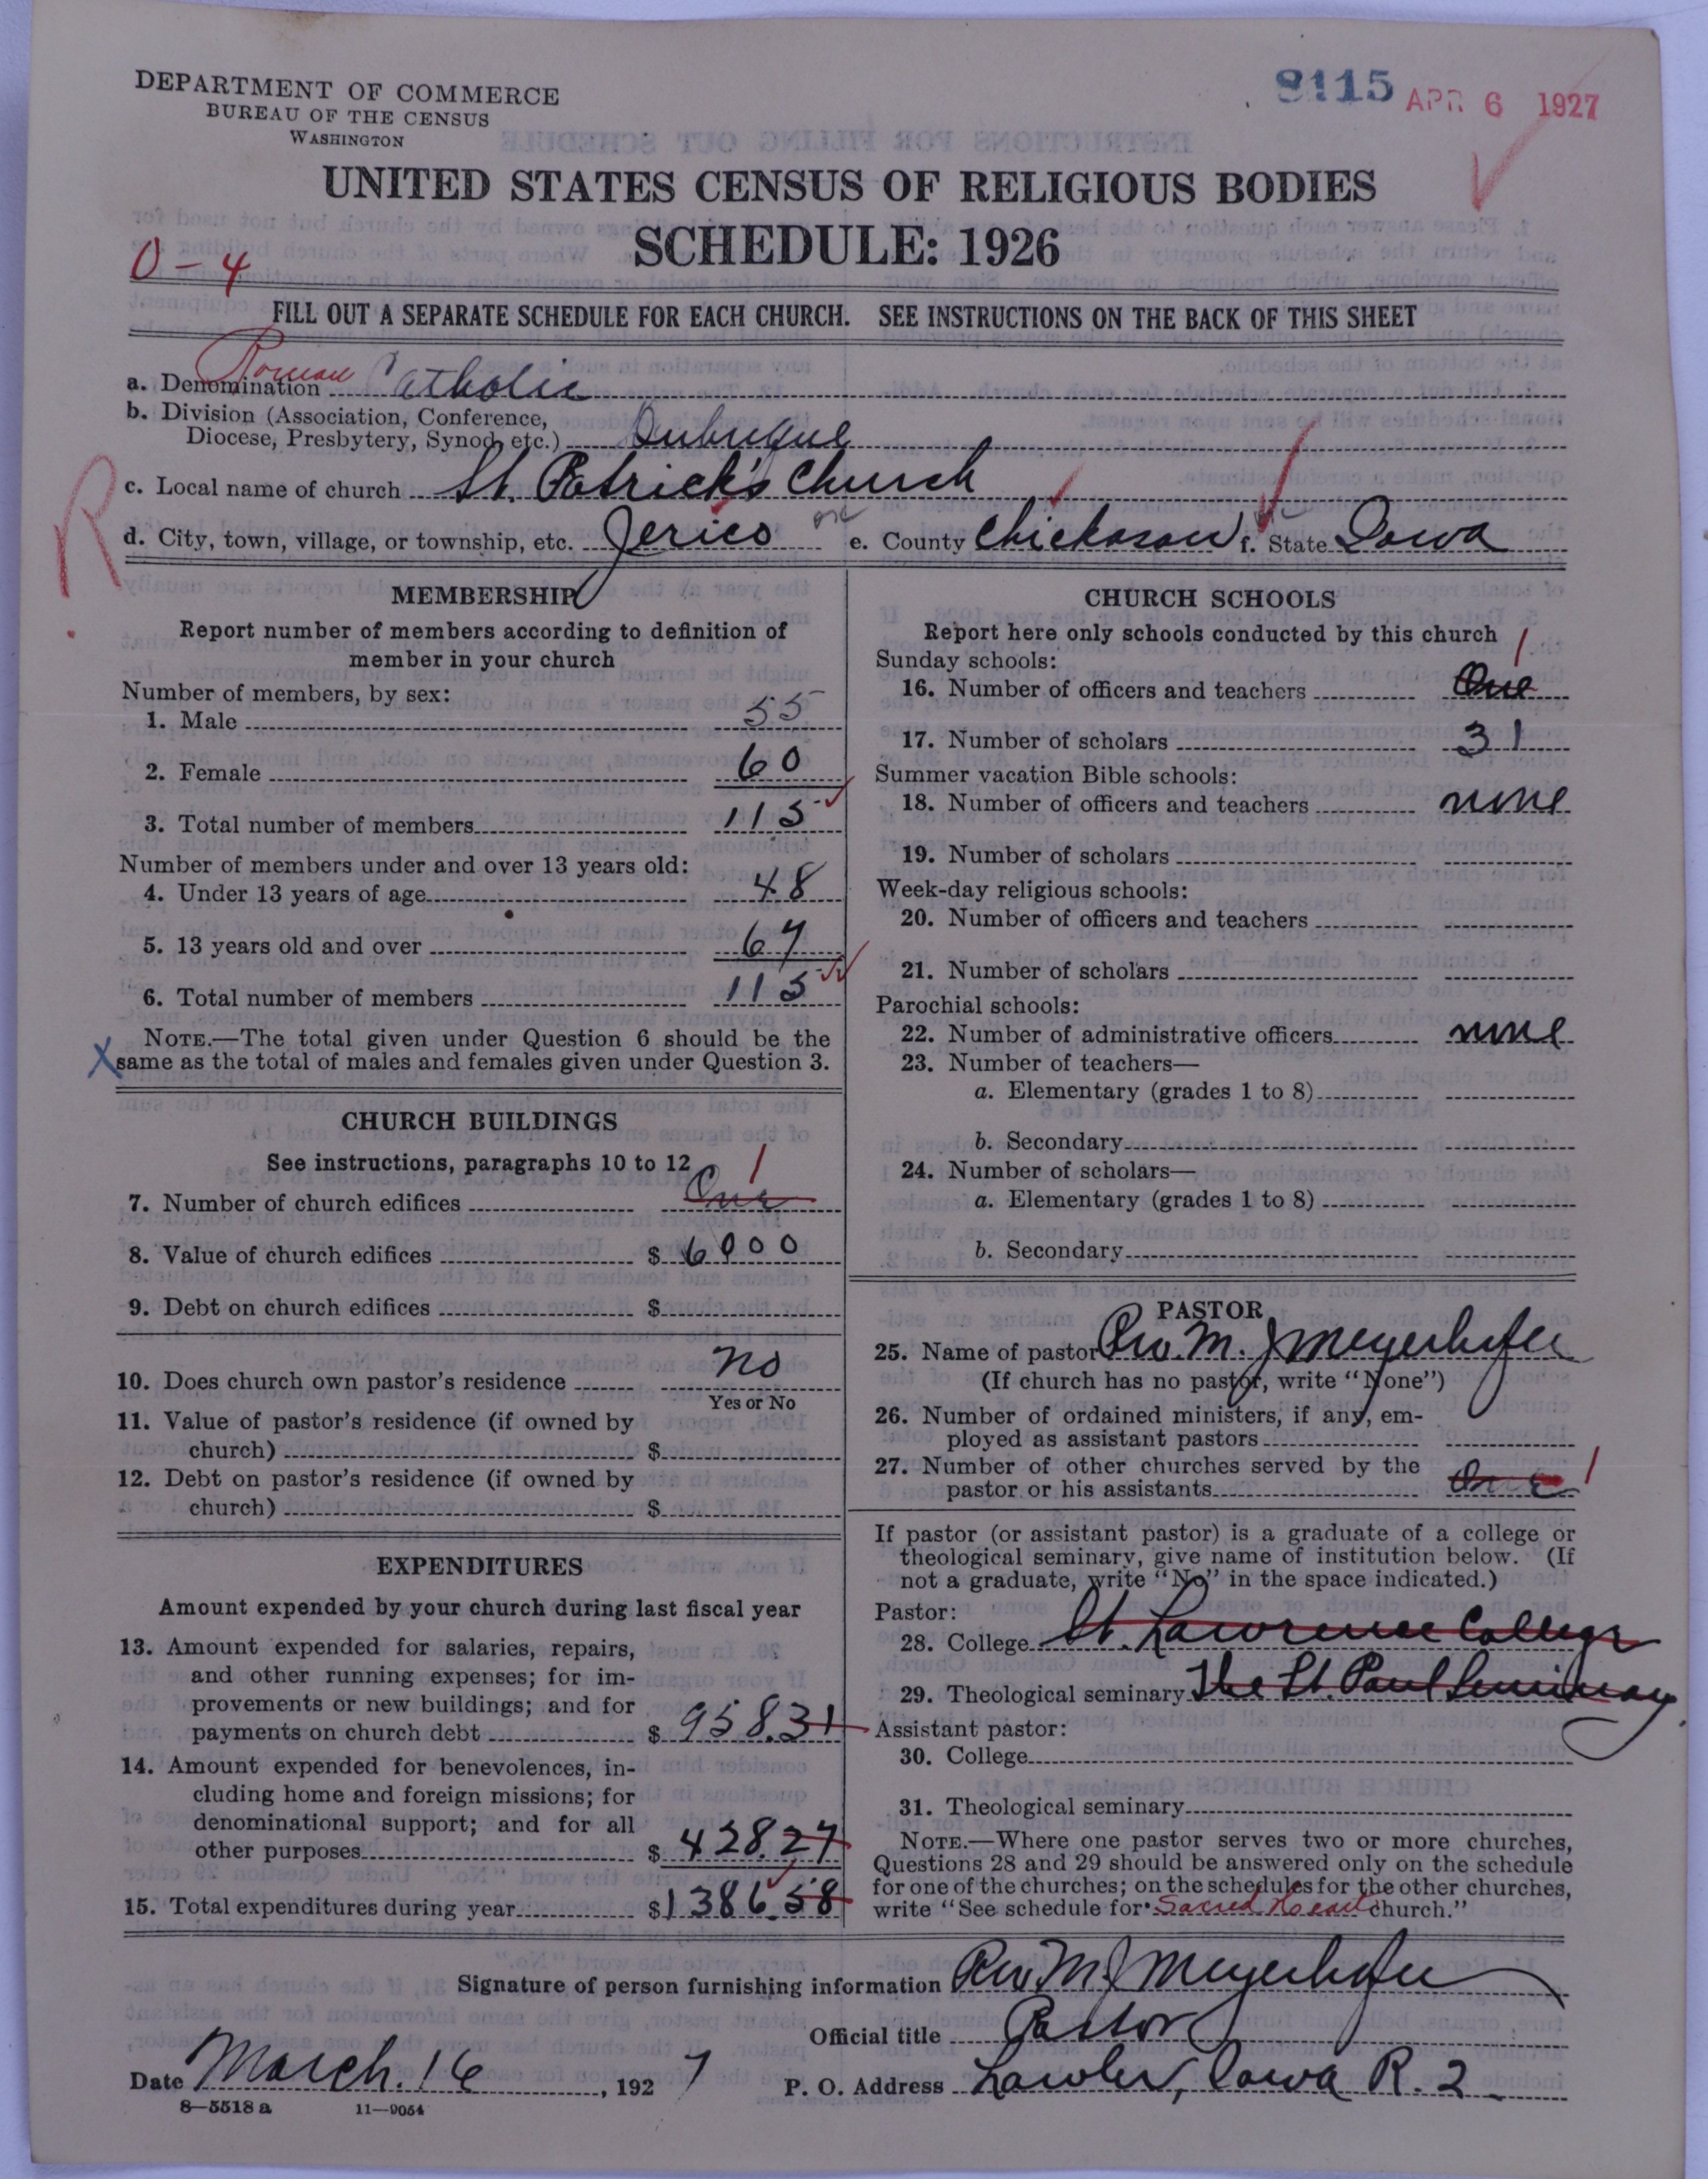 DEPARTMENT OF COMMERCE
BUREAU OF THE CENSUS
WASHINGTON
8115 APR 6 1927
UNITED STATES CENSUS OF RELIGIOUS BODIES
SCHEDULE: 1926
0-4
FILL OUT A SEPARATE SCHEDULE FOR EACH CHURCH. SEE INSTRUCTIONS ON THE BACK OF THIS SHEET
a. Denomination Roman Catholic
b. Division (Association, Conference,
Diocese, Presbytery, Synod, etc.) Dubuque
c. Local name of church St. Patrick's Church
R
d. City, town, village, or township, etc. Jerico e. County Chickasaw f. State Iowa
MEMBERSHIP
Report number of members according to definition of
member in your church
Number of members, by sex:
1. Male 55
2. Female 60
3. Total number of members 115
Number of members under and over 13 years old:
4. Under 13 years of age 48
5. 13 years old and over 67
6. Total number of members 115
NOTE.—The total given under Question 6 should be the
X same as the total of males and females given under Question 3.
CHURCH BUILDINGS
See instructions, paragraphs 10 to 12
7. Number of church edifices One 1
8. Value of church edifices $ 6000
9. Debt on church edifices $
10. Does church own pastor's residence No
Yes or No
11. Value of pastor's residence (if owned by
church) $
12. Debt on pastor's residence (if owned by
church) $
EXPENDITURES
Amount expended by your church during last fiscal year
13. Amount expended for salaries, repairs,
and other running expenses; for im-
provements or new buildings; and for
payments on church debt $ 958.31
14. Amount expended for benevolences, in-
cluding home and foreign missions; for
denominational support; and for all
other purposes $ 428.27
15. Total expenditures during year $ 1386.58
CHURCH SCHOOLS
Report here only schools conducted by this church
Sunday schools:
16. Number of officers and teachers One 1
17. Number of scholars 31
Summer vacation Bible schools:
18. Number of officers and teachers none
19. Number of scholars
Week-day religious schools:
20. Number of officers and teachers
21. Number of scholars
Parochial schools:
22. Number of administrative officers none
23. Number of teachers—
a. Elementary (grades 1 to 8)
b. Secondary
24. Number of scholars—
a. Elementary (grades 1 to 8)
b. Secondary
PASTOR
25. Name of pastor Rev. M. J Meyerhofer
(If church has no pastor, write "None")
26. Number of ordained ministers, if any, em-
ployed as assistant pastors
27. Number of other churches served by the
pastor or his assistants One 1
If pastor (or assistant pastor) is a graduate of a college or
theological seminary, give name of institution below. (If
not a graduate, write "No" in the space indicated.)
Pastor:
28. College St. Lawrence College
29. Theological seminary The St. Paul Seminary
Assistant pastor:
30. College
31. Theological seminary
NOTE.—Where one pastor serves two or more churches,
Questions 28 and 29 should be answered only on the schedule
for one of the churches; on the schedules for the other churches,
write "See schedule for Sacred Heart church."
Signature of person furnishing information Rev M. J Meyerhofer
Official title Pastor
Date March. 16, 1927 P. O. Address Lawler, Iowa R. 2
8—5518 a 11—9054